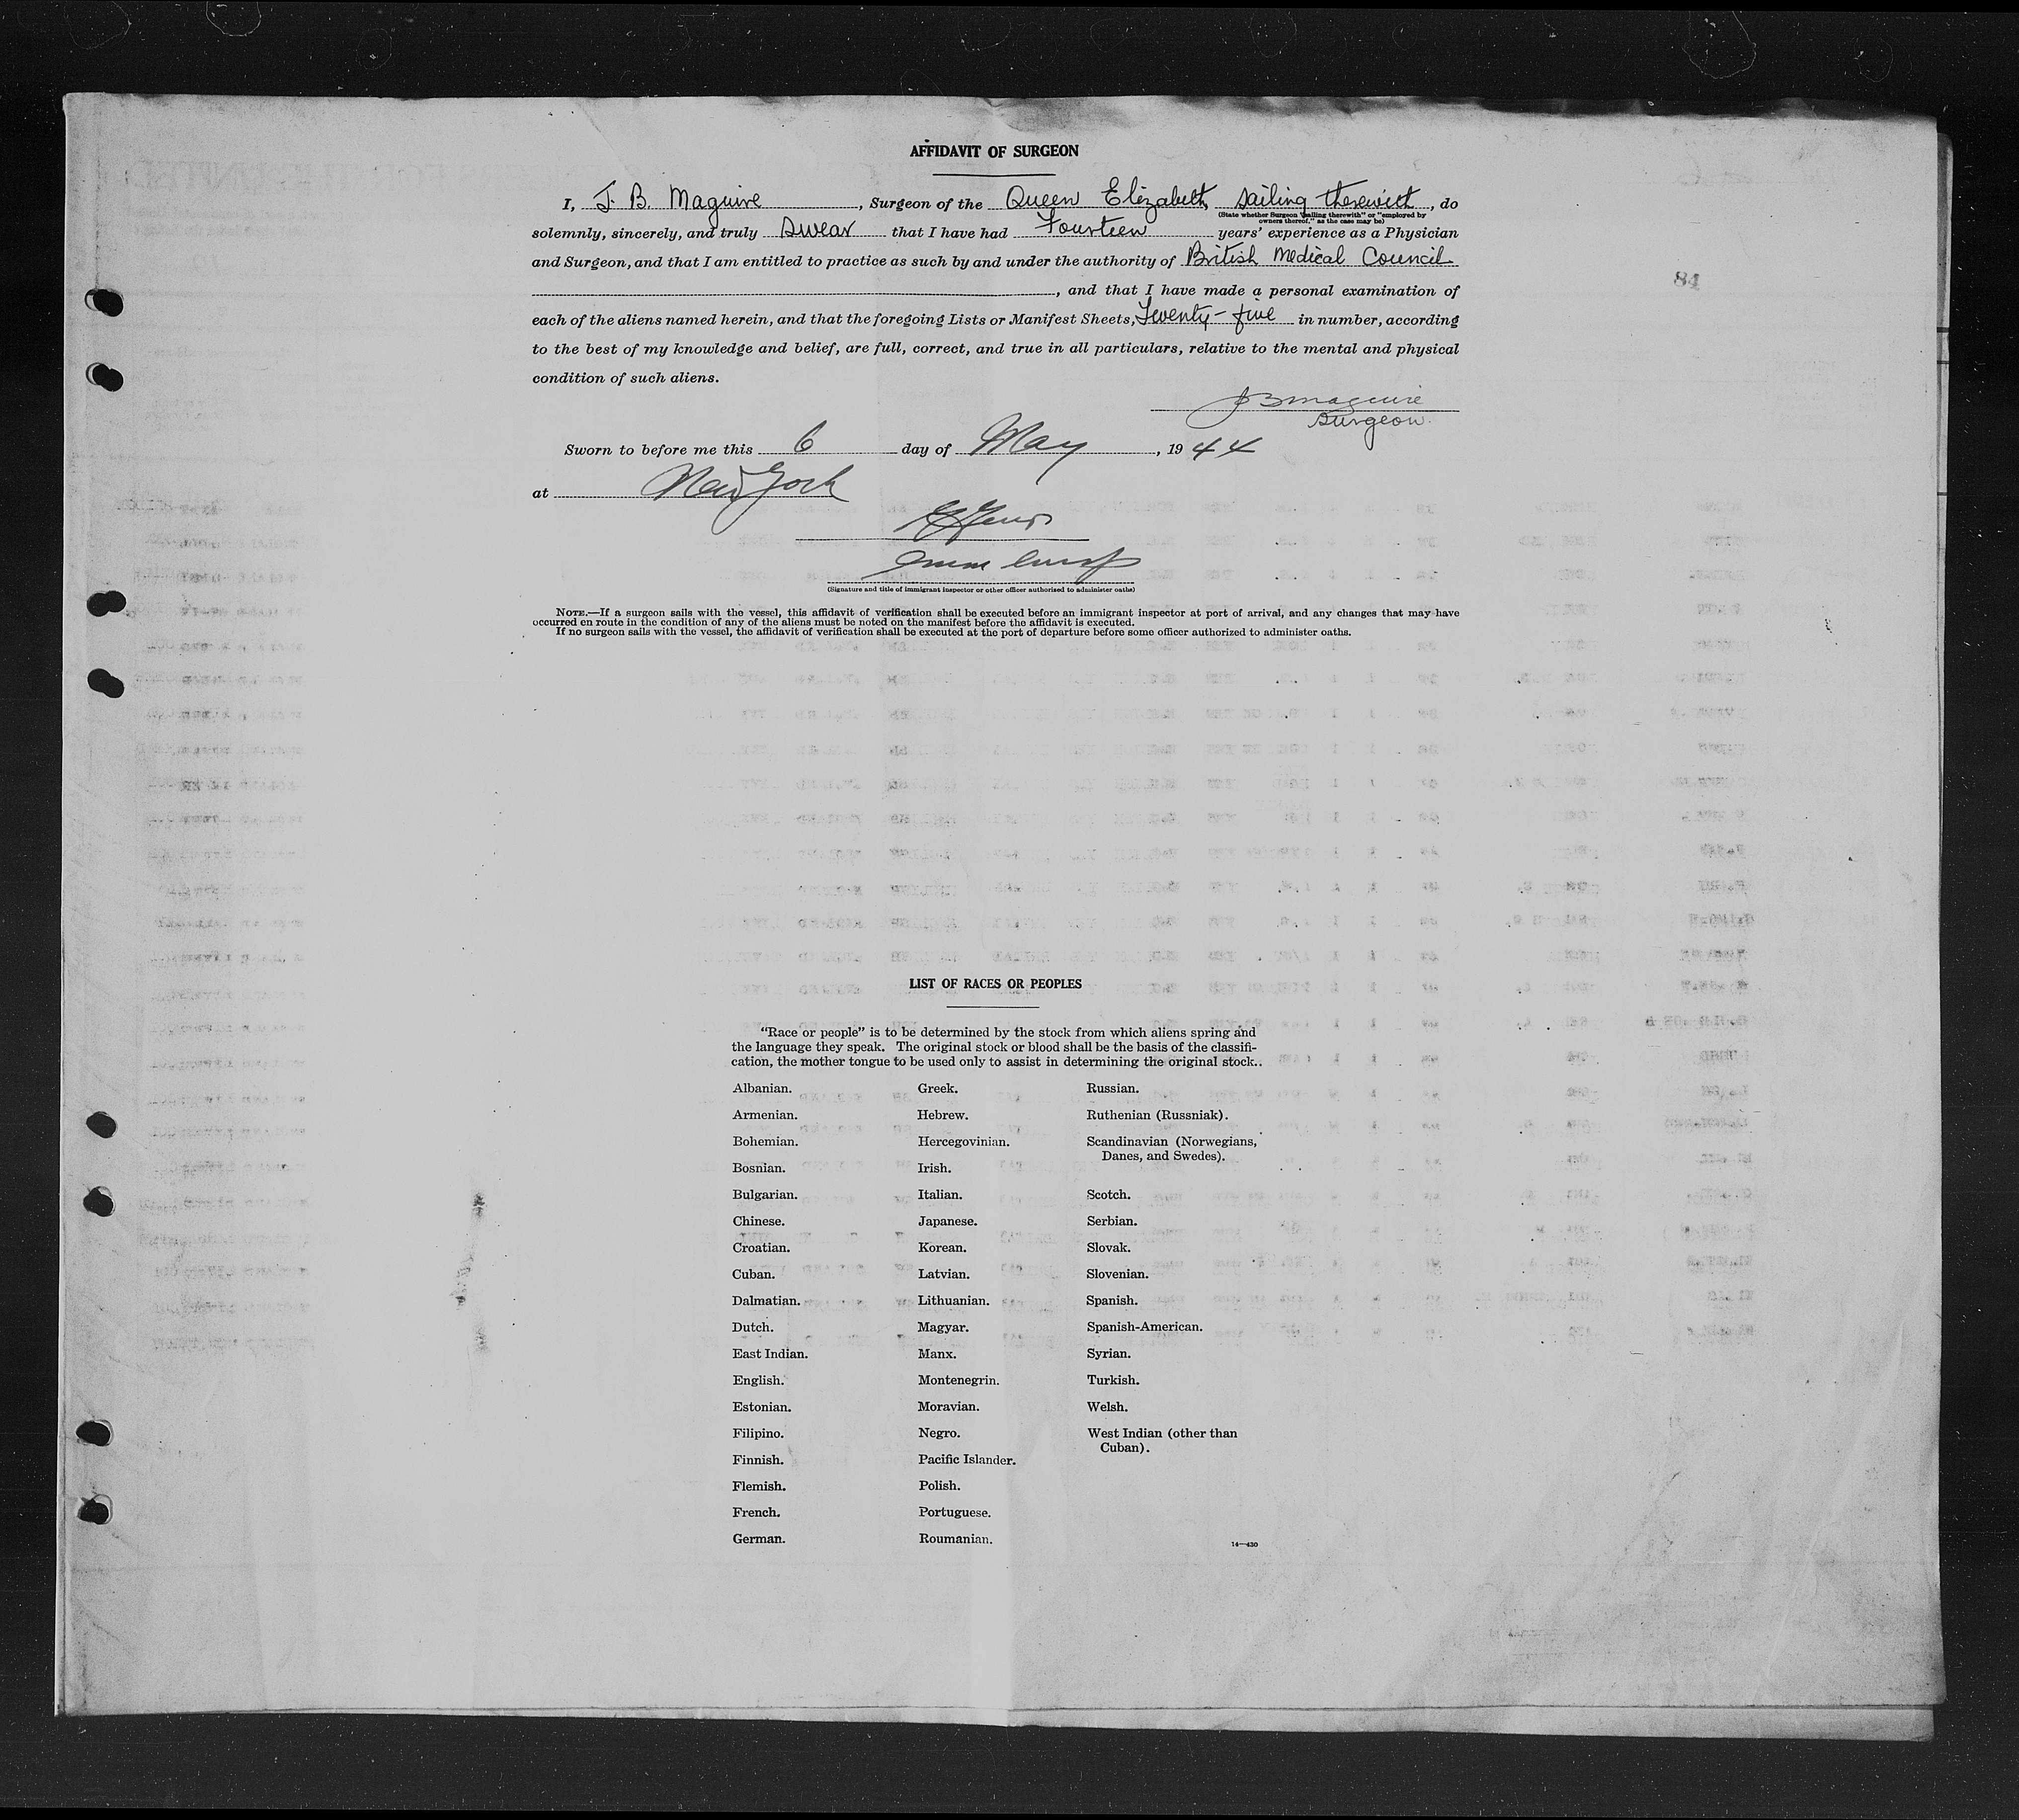 AFFIDAVIT OF SURGEON
I, J. B. Maguire, Surgeon of the Queen Elizabeth, sailing therewith, do
(State whether Surgeon "sailing therewith" or "employed by
owners thereof," as the case may be)
solemnly, sincerely, and truly Swear that I have had Fourteen years' experience as a Physician
and Surgeon, and that I am entitled to practice as such by and under the authority of British Medical Council
, and that I have made a personal examination of
84
each of the aliens named herein, and that the foregoing Lists or Manifest Sheets, Twenty-five in number, according
to the best of my knowledge and belief, are full, correct, and true in all particulars, relative to the mental and physical
condition of such aliens.
J B Maguire
Surgeon.
Sworn to before me this 6 day of May, 1944
at New York
(Signature and title of immigrant inspector or other officer authorized to administer oaths)
NOTE.—If a surgeon sails with the vessel, this affidavit of verification shall be executed before an immigrant inspector at port of arrival, and any changes that may have
occurred en route in the condition of any of the aliens must be noted on the manifest before the affidavit is executed.
If no surgeon sails with the vessel, the affidavit of verification shall be executed at the port of departure before some officer authorized to administer oaths.
LIST OF RACES OR PEOPLES
"Race or people" is to be determined by the stock from which aliens spring and
the language they speak. The original stock or blood shall be the basis of the classifi-
cation, the mother tongue to be used only to assist in determining the original stock..
Albanian.
Armenian.
Bohemian.
Bosnian.
Bulgarian.
Chinese.
Croatian.
Cuban.
Dalmatian.
Dutch.
East Indian.
English.
Estonian.
Filipino.
Finnish.
Flemish.
French.
German.
Greek.
Hebrew.
Hercegovinian.
Irish.
Italian.
Japanese.
Korean.
Latvian.
Lithuanian.
Magyar.
Manx.
Montenegrin.
Moravian.
Negro.
Pacific Islander.
Polish.
Portuguese.
Roumanian.
Russian.
Ruthenian (Russniak).
Scandinavian (Norwegians,
Danes, and Swedes).
Scotch.
Serbian.
Slovak.
Slovenian.
Spanish.
Spanish-American.
Syrian.
Turkish.
Welsh.
West Indian (other than
Cuban).
14—430